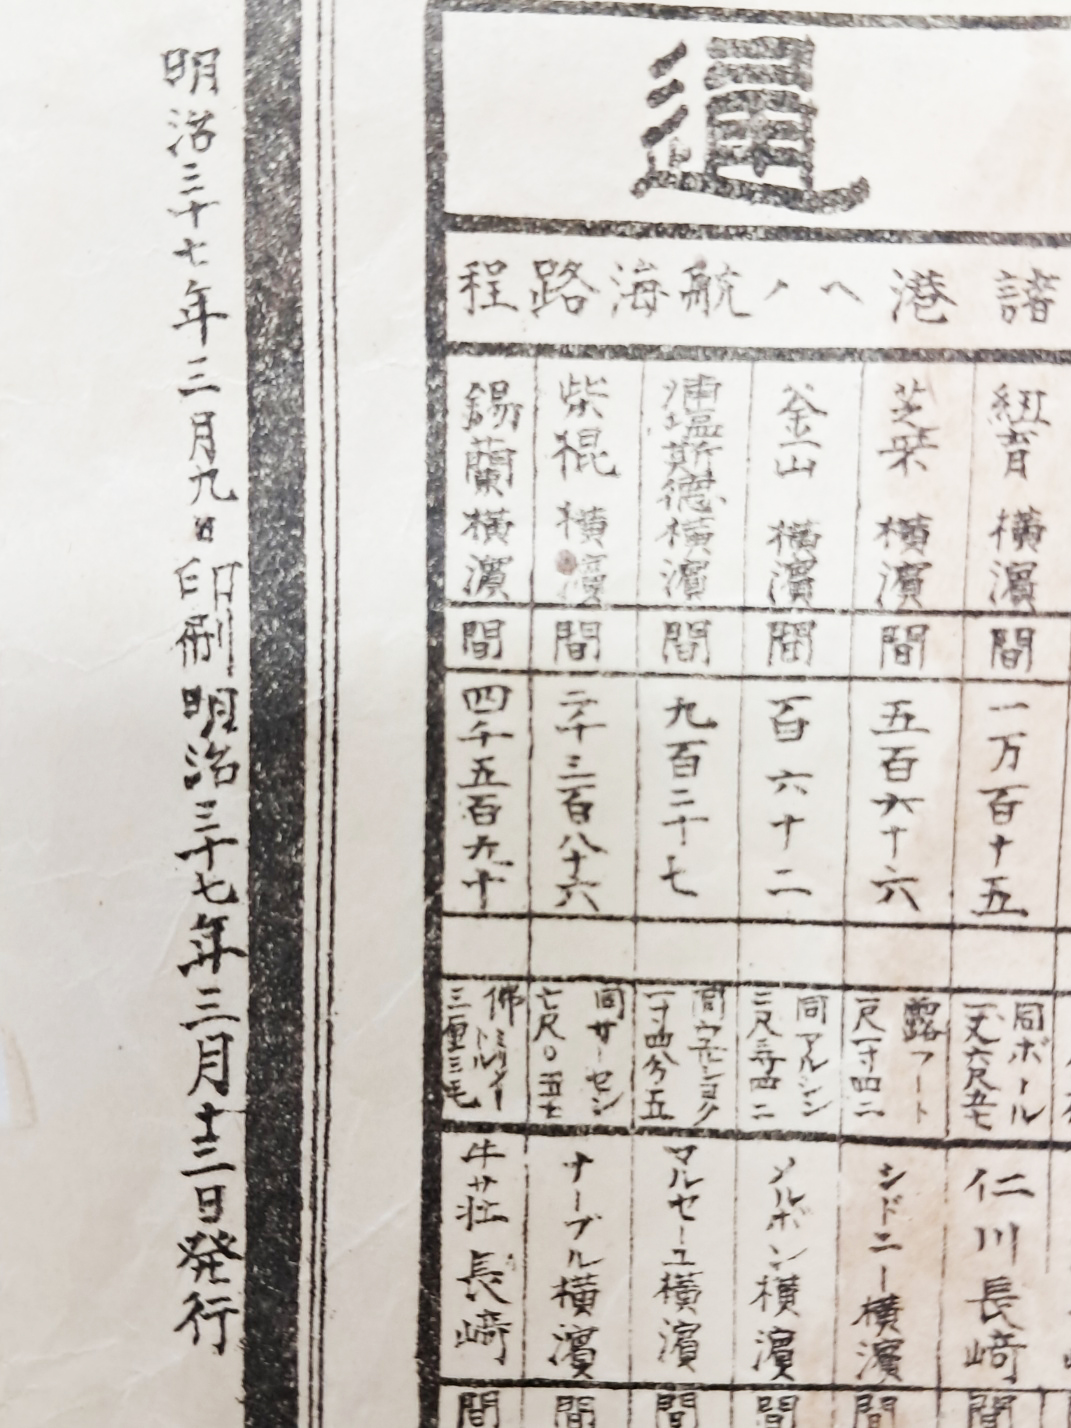 通
諸港ヘノ航海路程
紐育 横濱
間
一万百十五
芝罘 横濱
間
五百六十六
釜山 横濱
間
百六十二
浦塩斯德横濱
間
九百二十七
柴棍 横濱
間
二千三百八十六
錫蘭横濱
間
四千五百九十
同ボール
一丈六尺五七
露フート
一尺一寸四二
同アルシン
二尺三寸四二
同
一寸四分五
同サーセン
七尺〇五七
佛ミリメートル
三厘三毛
仁川長崎
間
シドニー横濱
間
メルボン横濱
間
マルセーユ横濱
間
ナーブル横濱
間
牛荘長崎
間
明治三十七年三月九日印刷明治三十七年三月十三日発行